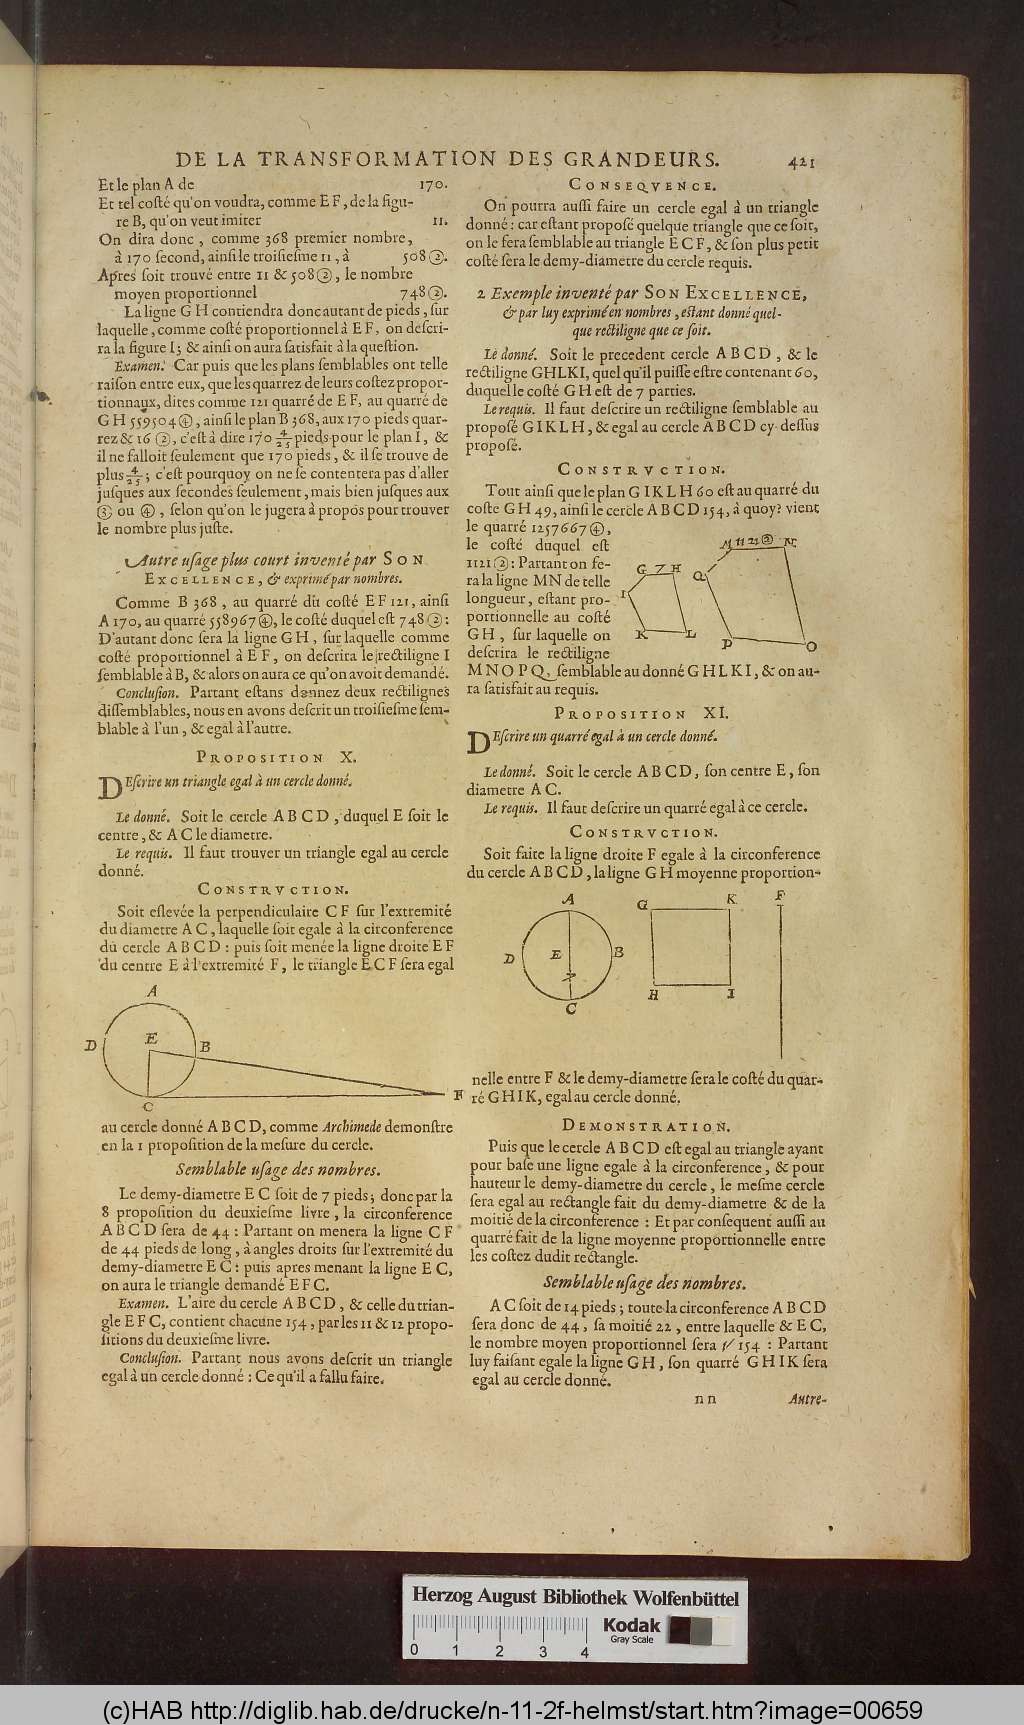 DE LA TRANSFORMATION DES GRANDEURS. 421
Et le plan A de 170.
Et tel coſté qu'on voudra, comme E F, de la figu-
re B, qu'on veut imiter 11.
On dira donc, comme 368 premier nombre,
à 170 ſecond, ainſi le troiſieſme 11, à 508②.
Apres ſoit trouvé entre 11 & 508②, le nombre
moyen proportionnel 748②.
La ligne G H contiendra donc autant de pieds, ſur
laquelle, comme coſté proportionnel à E F, on deſcri-
ra la figure I; & ainſi on aura ſatisfait à la queſtion.
Examen. Car puis que les plans ſemblables ont telle
raiſon entre eux, que les quarrez de leurs coſtez propor-
tionnaux, dites comme 121 quarré de E F, au quarré de
G H 559504④, ainſi le plan B 368, aux 170 pieds quar-
rez & 16 ②, c'eſt à dire 170 4/25 pieds pour le plan I, &
il ne falloit ſeulement que 170 pieds, & il ſe trouve de
plus 4/25; c'eſt pourquoy on ne ſe contentera pas d'aller
juſques aux ſecondes ſeulement, mais bien juſques aux
③ ou ④, ſelon qu'on le jugera à propos pour trouver
le nombre plus juſte.
Autre uſage plus court inventé par SON
EXCELLENCE, & exprimé par nombres.
Comme B 368, au quarré du coſté E F 121, ainſi
A 170, au quarré 558967④, le coſté duquel eſt 748②:
D'autant donc ſera la ligne G H, ſur laquelle comme
coſté proportionnel à E F, on deſcrira le rectiligne I
ſemblable à B, & alors on aura ce qu'on avoit demandé.
Concluſion. Partant eſtans donnez deux rectilignes
diſſemblables, nous en avons deſcrit un troiſieſme ſem-
blable à l'un, & egal à l'autre.
PROPOSITION X.
DEſcrire un triangle egal à un cercle donné.
Le donné. Soit le cercle A B C D, duquel E ſoit le
centre, & A C le diametre.
Le requis. Il faut trouver un triangle egal au cercle
donné.
CONSTRVCTION.
Soit eſlevée la perpendiculaire C F ſur l'extremité
du diametre A C, laquelle ſoit egale à la circonference
du cercle A B C D: puis ſoit menée la ligne droite E F
du centre E à l'extremité F, le triangle E C F ſera egal
A
D
E
B
C
F
au cercle donné A B C D, comme Archimede demonſtre
en la 1 propoſition de la meſure du cercle.
Semblable uſage des nombres.
Le demy-diametre E C ſoit de 7 pieds; donc par la
8 propoſition du deuxieſme livre, la circonference
A B C D ſera de 44: Partant on menera la ligne C F
de 44 pieds de long, à angles droits ſur l'extremité du
demy-diametre E C: puis apres menant la ligne E C,
on aura le triangle demandé E F C.
Examen. L'aire du cercle A B C D, & celle du trian-
gle E F C, contient chacune 154, par les 11 & 12 propo-
ſitions du deuxieſme livre.
Concluſion. Partant nous avons deſcrit un triangle
egal à un cercle donné: Ce qu'il a fallu faire.
CONSEQVENCE.
On pourra auſſi faire un cercle egal à un triangle
donné: car eſtant propoſé quelque triangle que ce ſoit,
on le fera ſemblable au triangle E C F, & ſon plus petit
coſté ſera le demy-diametre du cercle requis.
2 Exemple inventé par SON EXCELLENCE,
& par luy exprimé en nombres, eſtant donné quel-
que rectiligne que ce ſoit.
Le donné. Soit le precedent cercle A B C D, & le
rectiligne GHLKI, quel qu'il puiſſe eſtre contenant 60,
duquel le coſté G H eſt de 7 parties.
Le requis. Il faut deſcrire un rectiligne ſemblable au
propoſé G I K L H, & egal au cercle A B C D cy deſſus
propoſé.
CONSTRVCTION.
Tout ainſi que le plan G I K L H 60 eſt au quarré du
coſte G H 49, ainſi le cercle A B C D 154, à quoy? vient
le quarré 1257667④,
le coſté duquel eſt
1121②: Partant on fe-
ra la ligne MN de telle
longueur, eſtant pro-
portionnelle au coſté
G H, ſur laquelle on
deſcrira le rectiligne
M N O P Q, ſemblable au donné G H L K I, & on au-
ra ſatisfait au requis.
G 7 H
I
K
L
M 1121② N
Q
P
O
PROPOSITION XI.
DEſcrire un quarré egal à un cercle donné.
Le donné. Soit le cercle A B C D, ſon centre E, ſon
diametre A C.
Le requis. Il faut deſcrire un quarré egal à ce cercle.
CONSTRVCTION.
Soit faite la ligne droite F egale à la circonference
du cercle A B C D, la ligne G H moyenne proportion-
A
D
E
B
7
C
G
K
H
I
F
nelle entre F & le demy-diametre ſera le coſté du quar-
ré G H I K, egal au cercle donné.
DEMONSTRATION.
Puis que le cercle A B C D eſt egal au triangle ayant
pour baſe une ligne egale à la circonference, & pour
hauteur le demy-diametre du cercle, le meſme cercle
ſera egal au rectangle fait du demy-diametre & de la
moitié de la circonference: Et par conſequent auſſi au
quarré fait de la ligne moyenne proportionnelle entre
les coſtez dudit rectangle.
Semblable uſage des nombres.
A C ſoit de 14 pieds; toute la circonference A B C D
ſera donc de 44, ſa moitié 22, entre laquelle & E C,
le nombre moyen proportionnel ſera √ 154: Partant
luy faiſant egale la ligne G H, ſon quarré G H I K ſera
egal au cercle donné.
n n Autre-
Herzog August Bibliothek Wolfenbüttel
0 1 2 3 4
Kodak
Gray Scale
(c)HAB http://diglib.hab.de/drucke/n-11-2f-helmst/start.htm?image=00659